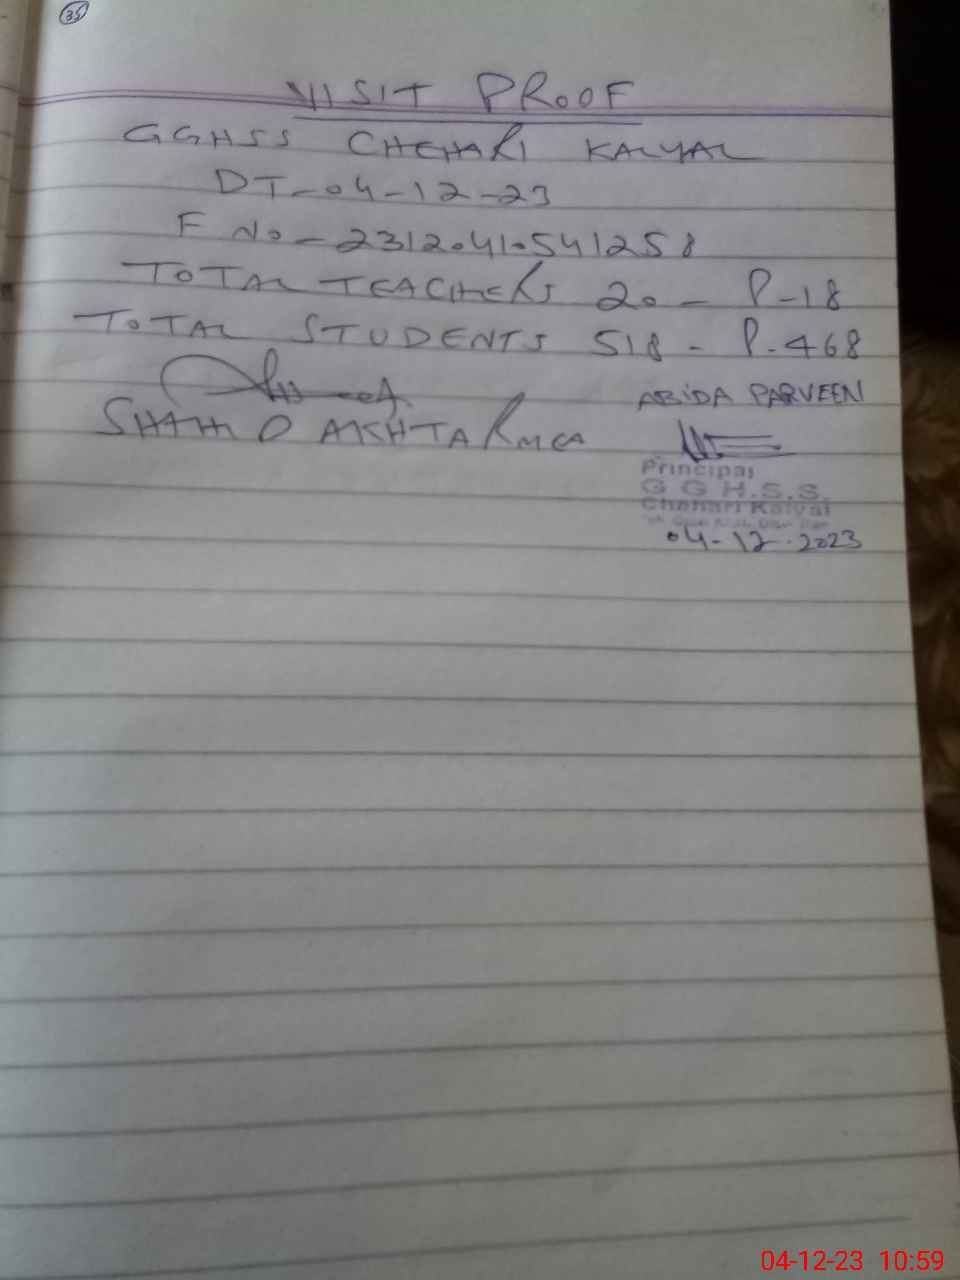 35
VISIT PROOF
GGHSS CHEHARI KALYAL
DT-04-12-23
F No-231204105541258
TOTAL TEACHERS 20 - P-18
TOTAL STUDENTS 518 - P-468
ABIDA PARVEEN
AKHTAR MEA
Principal
G G H.S.S.
Chehari Kalyal
04-12-2023
04-12-23 10:59